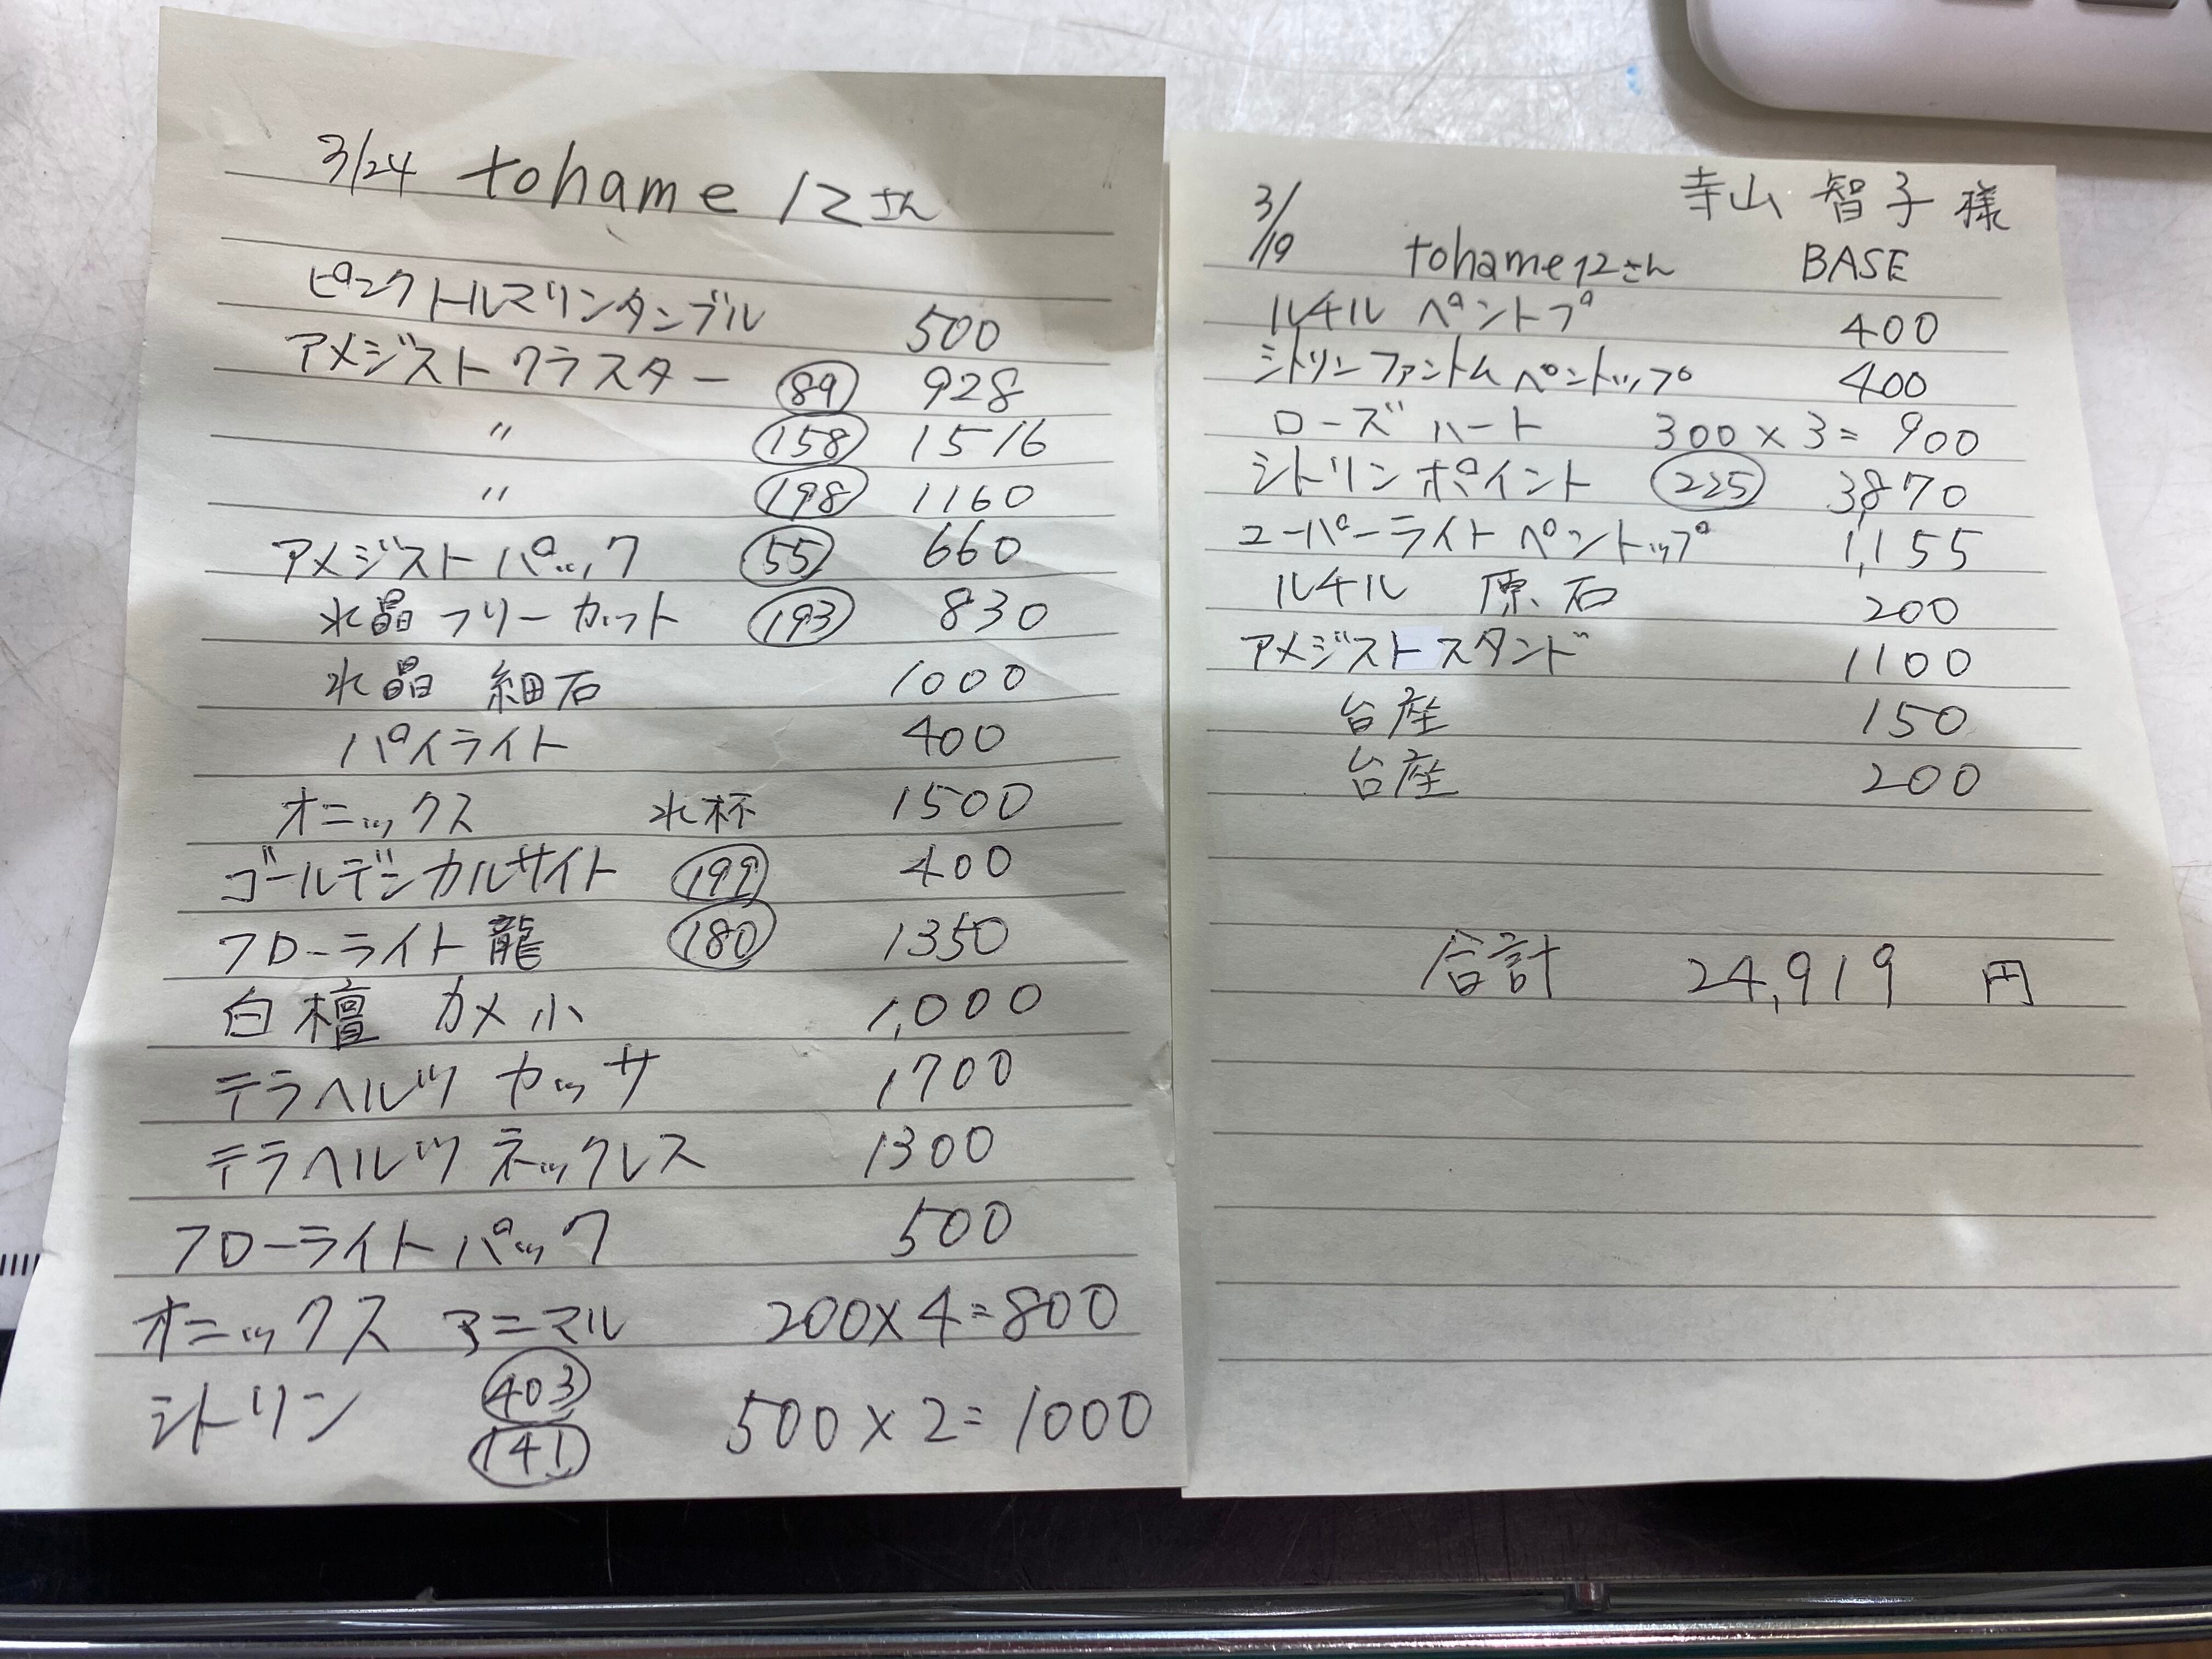 3/24 tohame12さん
ピンクトルマリンタンブル 500
アメジストクラスター 89 928
〃 158 1516
〃 198 1160
アメジストパック 55 660
水晶フリーカット 193 830
水晶 細石 1000
パイライト 400
オニックス 水杯 1500
ゴールデンカルサイト 199 400
フローライト龍 180 1350
白檀 カメ小 1,000
テラヘルツ カッサ 1700
テラヘルツ ネックレス 1300
フローライト パック 500
オニックス アニマル 200×4=800
シトリン 403 141 500×2=1000
寺山 智子 様
3/19 tohame12さん BASE
ルチル ペントプ 400
シトリンファントムペントップ 400
ローズ ハート 300×3=900
シトリンポイント 225 3,870
ユーパーライト ペントップ 1,155
ルチル 原石 200
アメジストスタンド 1100
台座 150
台座 200
合計 24,919 円